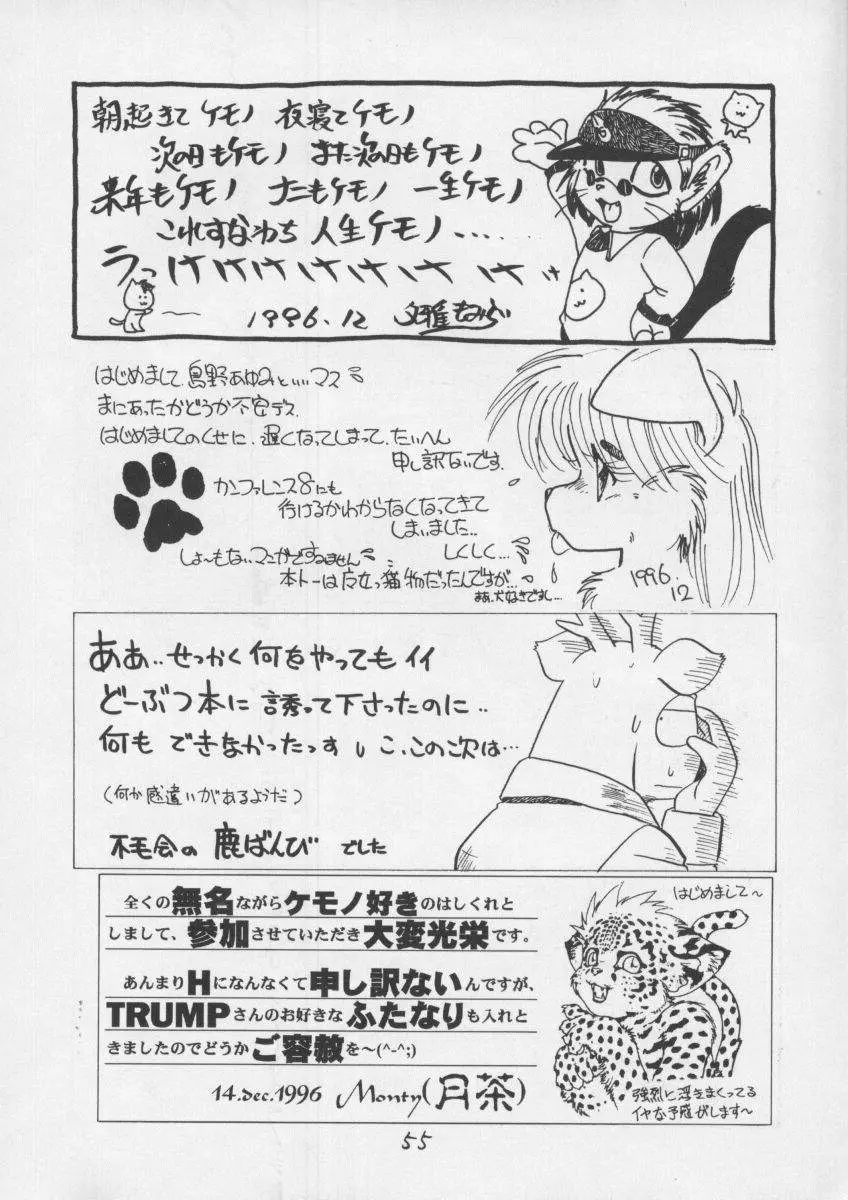 朝起きてケモノ 夜寝てケモノ
次の日もケモノ また次の日もケモノ
来年もケモノ ずーっとケモノ 一生ケモノ
これすなわち 人生ケモノ....
うっけけけけけけけ
1996.12
はじめまして、鳥野あゆみといいマス
まにあったかどうか不安デス
はじめましてのくせに、遅くなってしまって、たいへん
申し訳ないです。
カンファレンス8にも
行けるかわからなくなってきて
しまいました..
しくしく...
しょ〜もないマンガですみません
本トーは
猫物だったんですが...
まあ、犬好きですし...
1996.
12
ああ..せっかく何をやってもイイ
どーぶつ本に誘って下さったのに..
何もできなかったっす こ、この次は…
(何か感違いがあるようだ)
不毛会の 鹿ばんび でした
全くの無名ながらケモノ好きのはしくれと
しまして、参加させていただき大変光栄です。
あんまりHになんなくて申し訳ないんですが、
TRUMPさんのお好きなふたなりも入れと
きましたのでどうかご容赦を〜(^-^;)
14.dec.1996 Monty(月茶)
はじめまして〜
強烈に浮きまくってる
イヤな予感がします〜
55